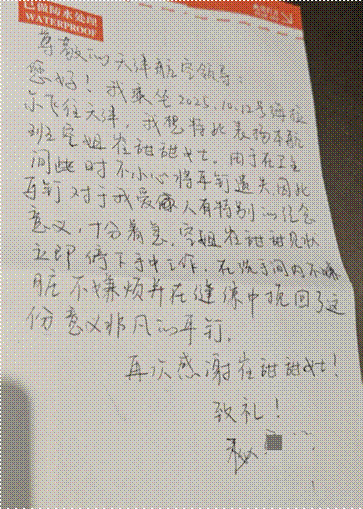 已做防水处理
WATERPROOF
尊敬的天津航空领导:
您好!我乘坐2025.10.12号海拉
尔飞往天津,我想特此表扬本航
班空姐崔甜甜女士。由于在卫生
间此时不小心将耳钉遗失,因此
耳钉对于我爱人有特别的纪念
意义,十分着急,空姐崔甜甜见状
立即停下手中工作,在洗手间内不嫌
脏不嫌烦并在缝隙中挽回了这
份意义非凡的耳钉。
再次感谢崔甜甜女士!
致礼!